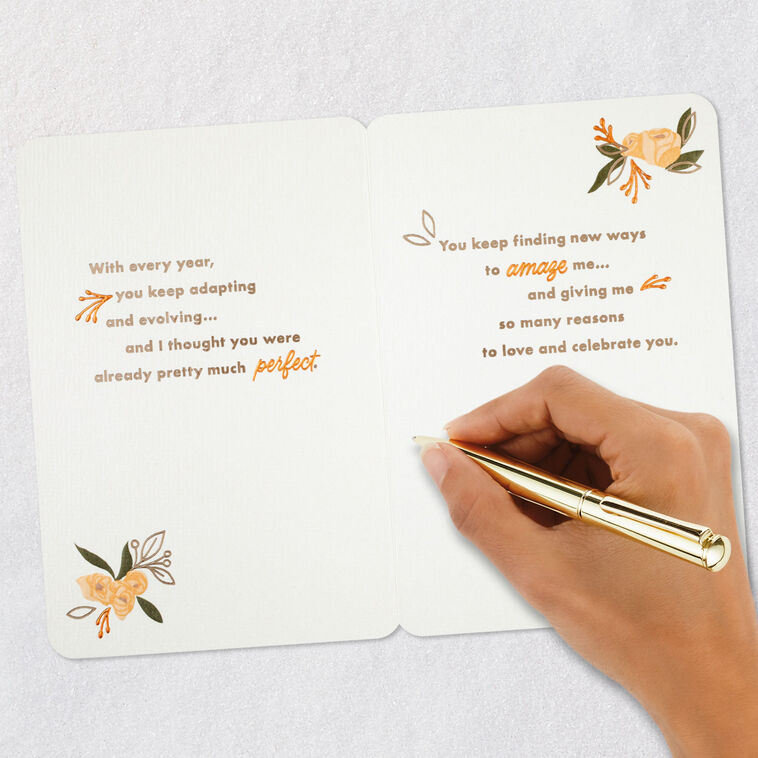 With every year,
you keep adapting
and evolving...
and I thought you were
already pretty much perfect.
You keep finding new ways
to amaze me...
and giving me
so many reasons
to love and celebrate you.